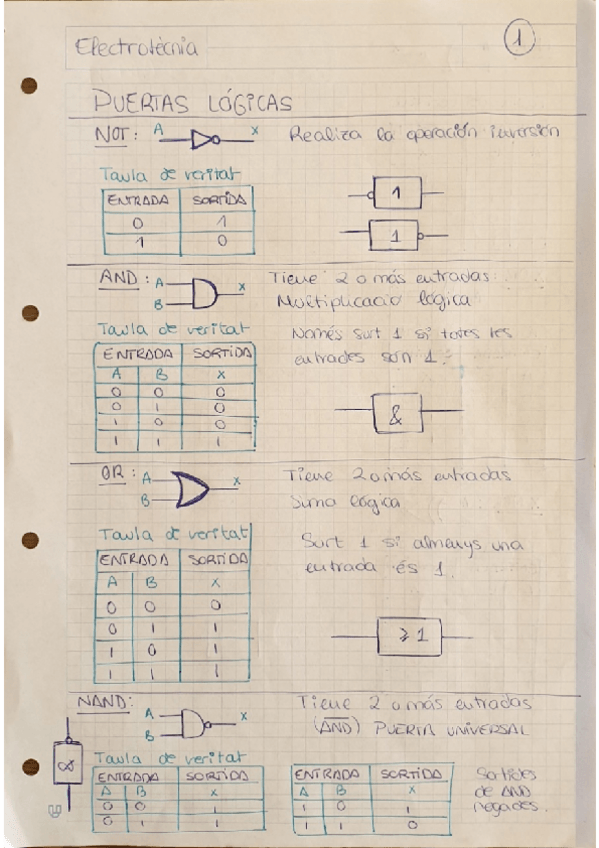 Electrotècnia
1
PUERTAS LÓGICAS
NOT: A X Realiza la operación inversión
Taula de veritat
ENTRADA SORTIDA
0 1
1 0
1
1
AND: A X Tiene 2 o más entradas
B Multiplicació lógica
Taula de veritat Només surt 1 si totes les
entrades són 1.
ENTRADA SORTIDA
A B X
0 0 0
0 1 0
1 0 0
1 1 1
&
OR: A X Tiene 2 o más entradas
B Suma lógica
Taula de veritat Surt 1 si almenys una
entrada és 1.
ENTRADA SORTIDA
A B X
0 0 0
0 1 1
1 0 1
1 1 1
⩾1
NAND: A X Tiene 2 o más entradas
B (AND) PUERTA UNIVERSAL
&
Taula de veritat
ENTRADA SORTIDA ENTRADA SORTIDA Sortides
A B X A B X de AND
0 0 1 1 0 1 negades.
0 1 1 1 1 0